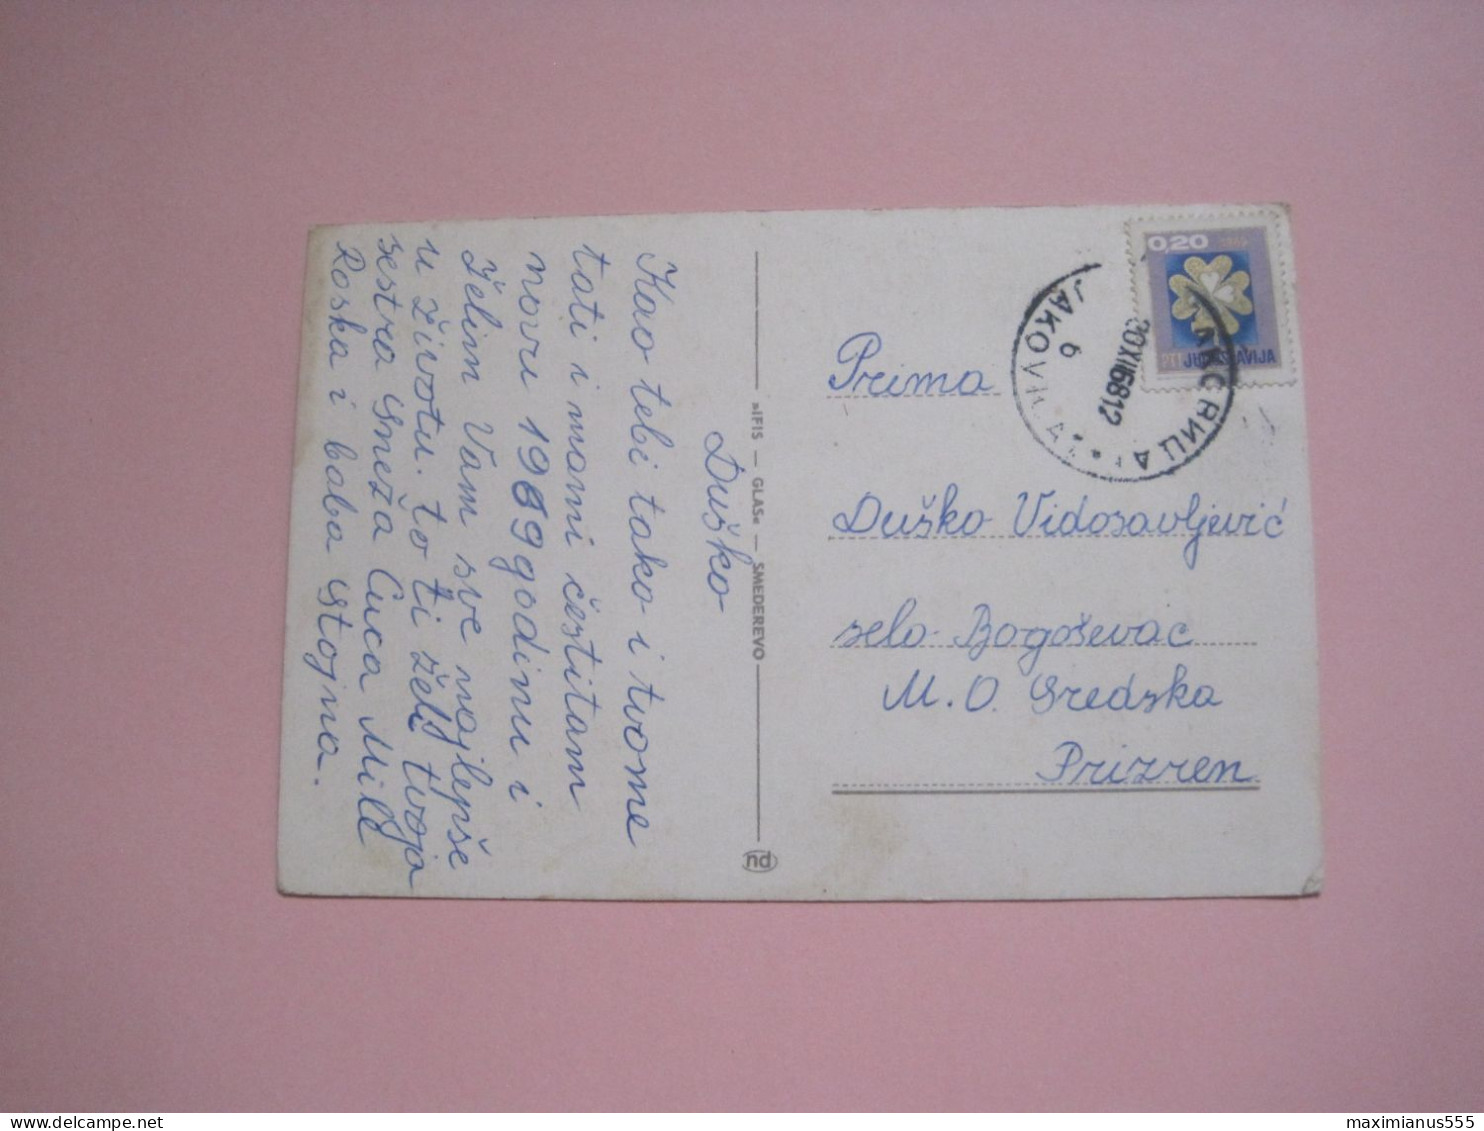 Duško
Kao tebi tako i tvome
tati i mami čestitam
novu 1969 godinu i
želim Vam sve najlepše
u životu. to ti želi tvoja
sestra Sneža Cuca Mile
Roska i baba Stojna.
»IFIS — GLAS« — SMEDEREVO
nd
0,20
PTT JUGOSLAVIJA
JAKOVICA
6
30XII6812
Prima
Duško Vidosavljević
selo Bogoševac
M. O. Sredska
Prizren
maximianus555